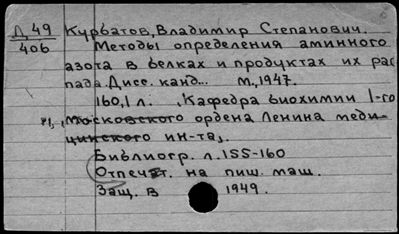 Д 49
406
Курбатов, Владимир Степанович.
Методы определения аминного
азота в белках и продуктах их рас
пада. Дисс. канд... М., 1947.
160,1 л. (Кафедра биохимии I-го
Московского ордена Ленина меди-
цинского ин-та).
Библиогр. л. 155-160
Отпечат. на пиш. маш.
Защ. в 1949.